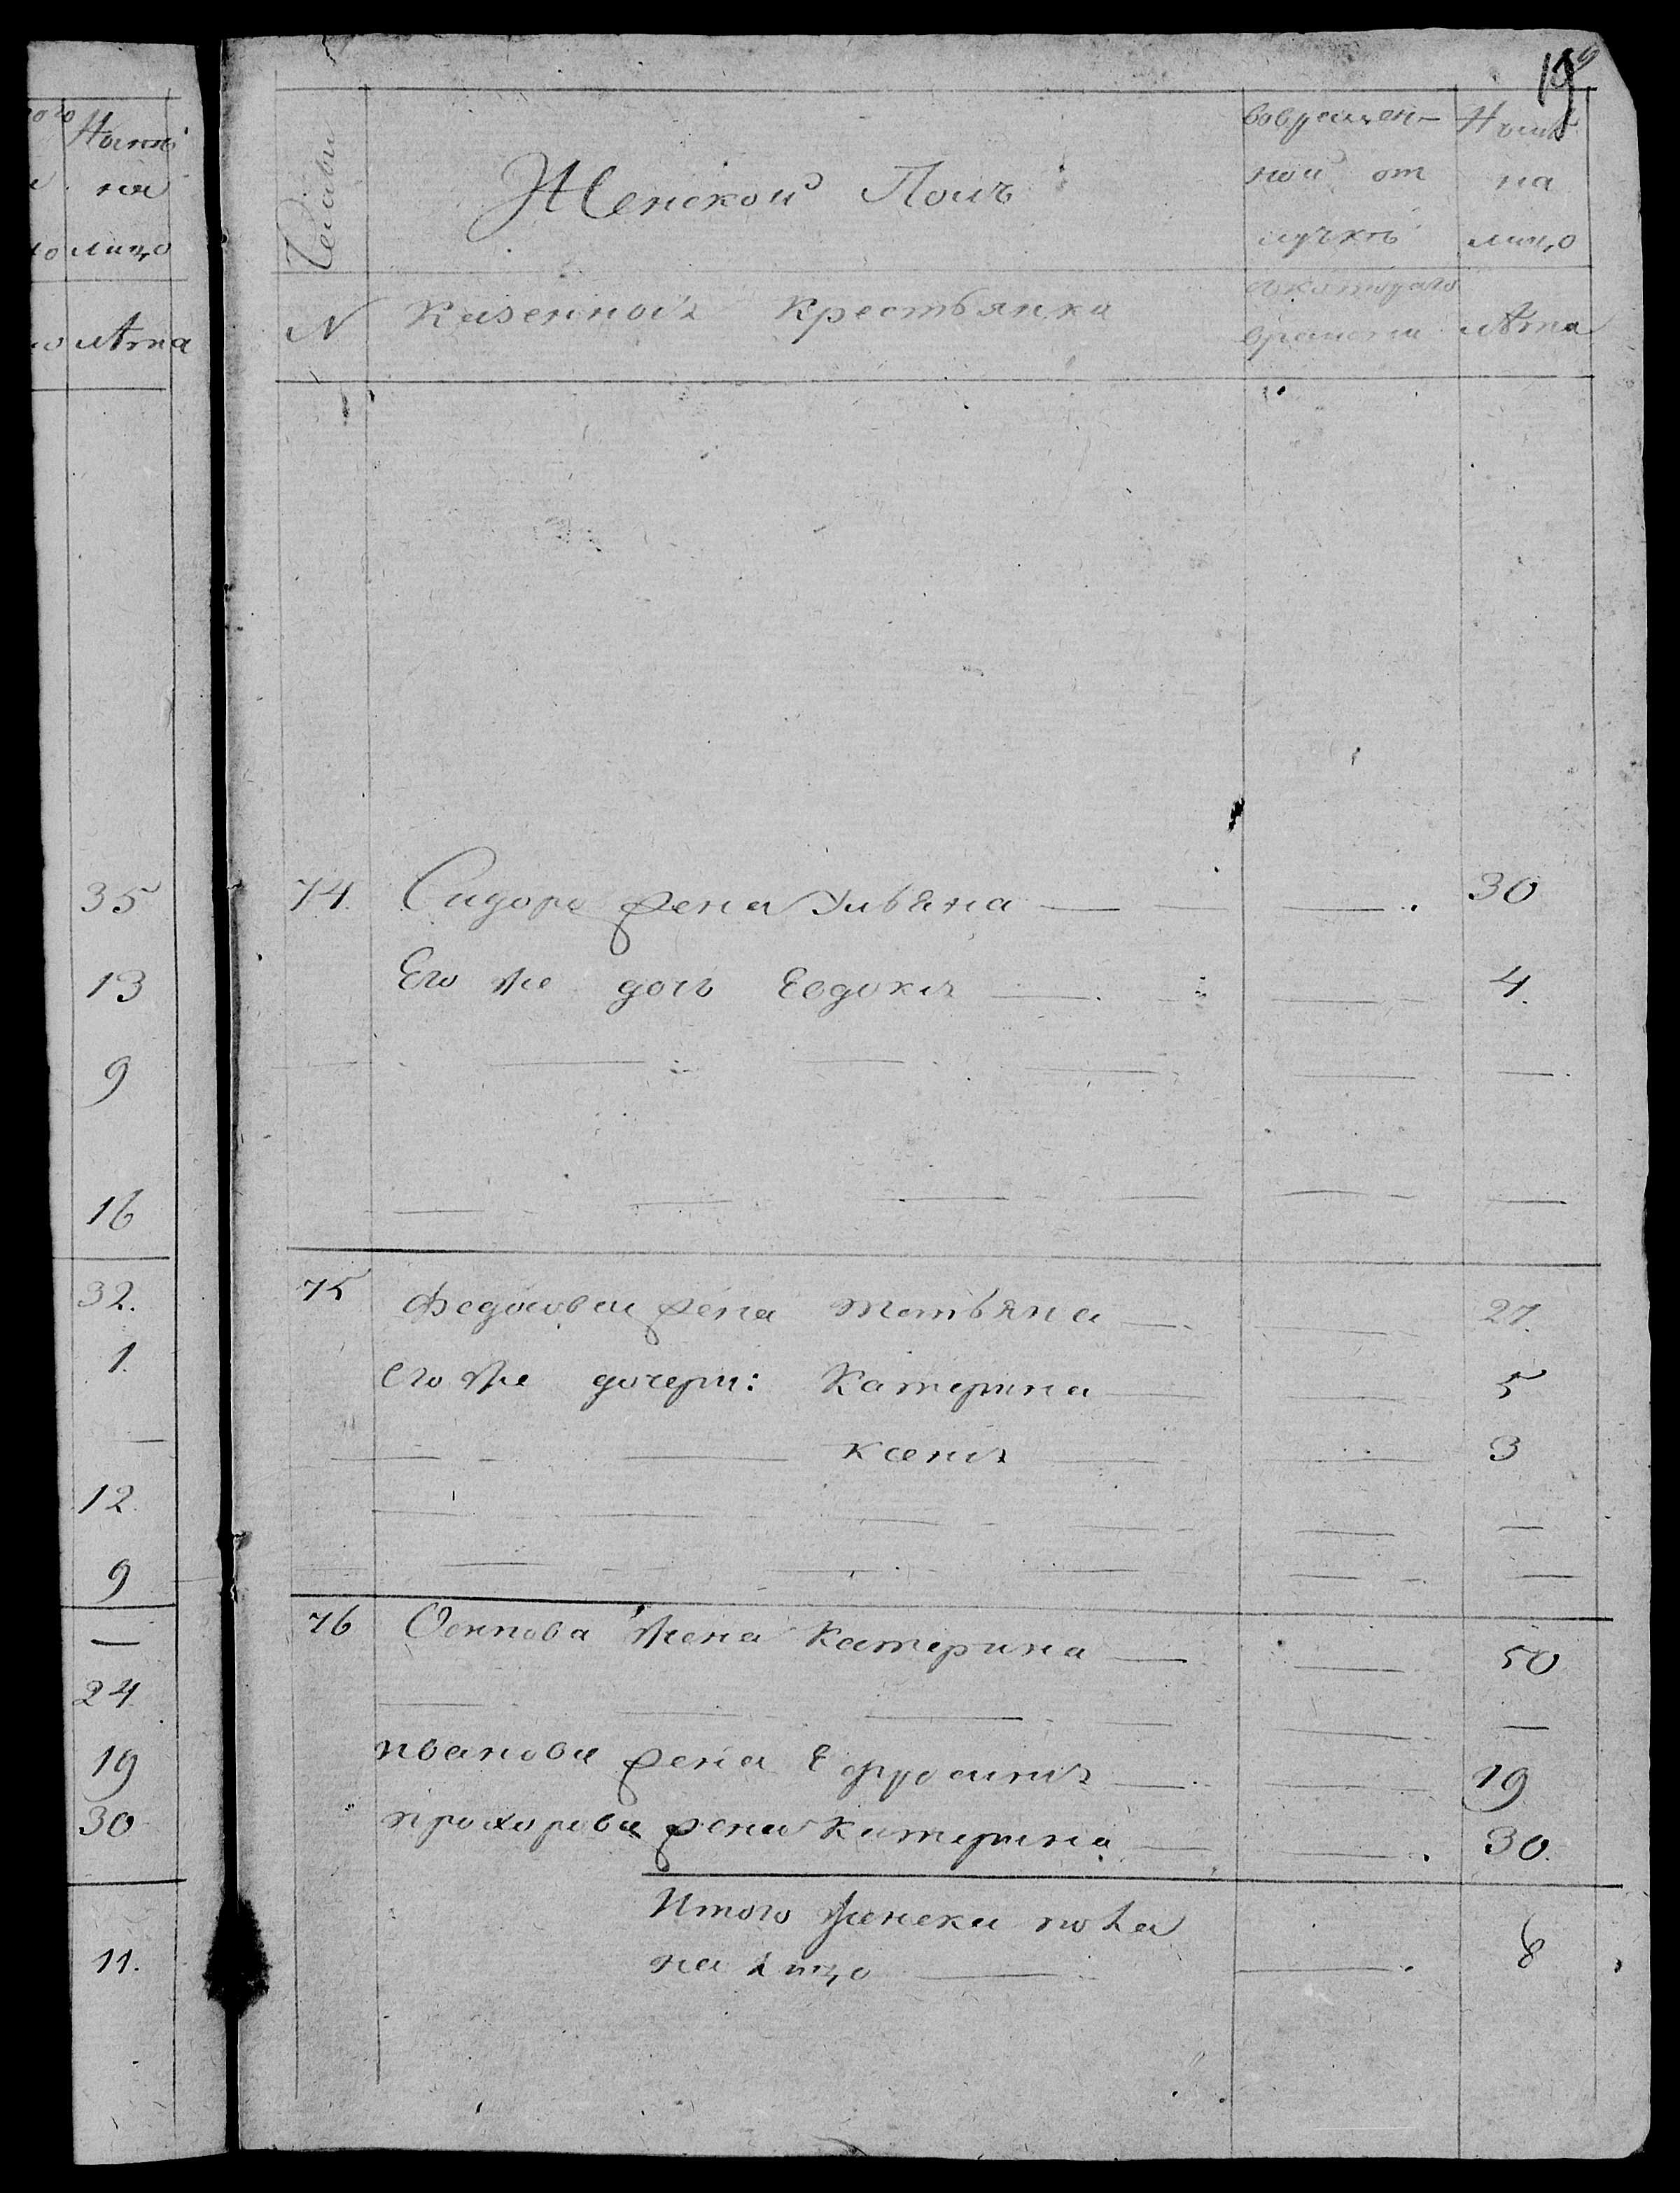 ого Нынѣ
на
ло лицо
лѣта
35
13
9
16
32.
1.
12.
9
24
19
30
11.
19
Женской Полъ
вовремен-
ной от
лучкѣ
Нынѣ
на
лицо
N Казенная Крестьянка
съкотораго
времени
лѣта
74. Сидора жена Ульяна 30
Его же дочь Евдокия 4.
75 Федосова жена татьяна 27.
его же дочери: Катерина 5
ксения 3
76 Осипова жена Катерина 50
иванова жена Ефросиния 19
прохорова жена Катерина 30.
Итого женска пола
на лицо 8